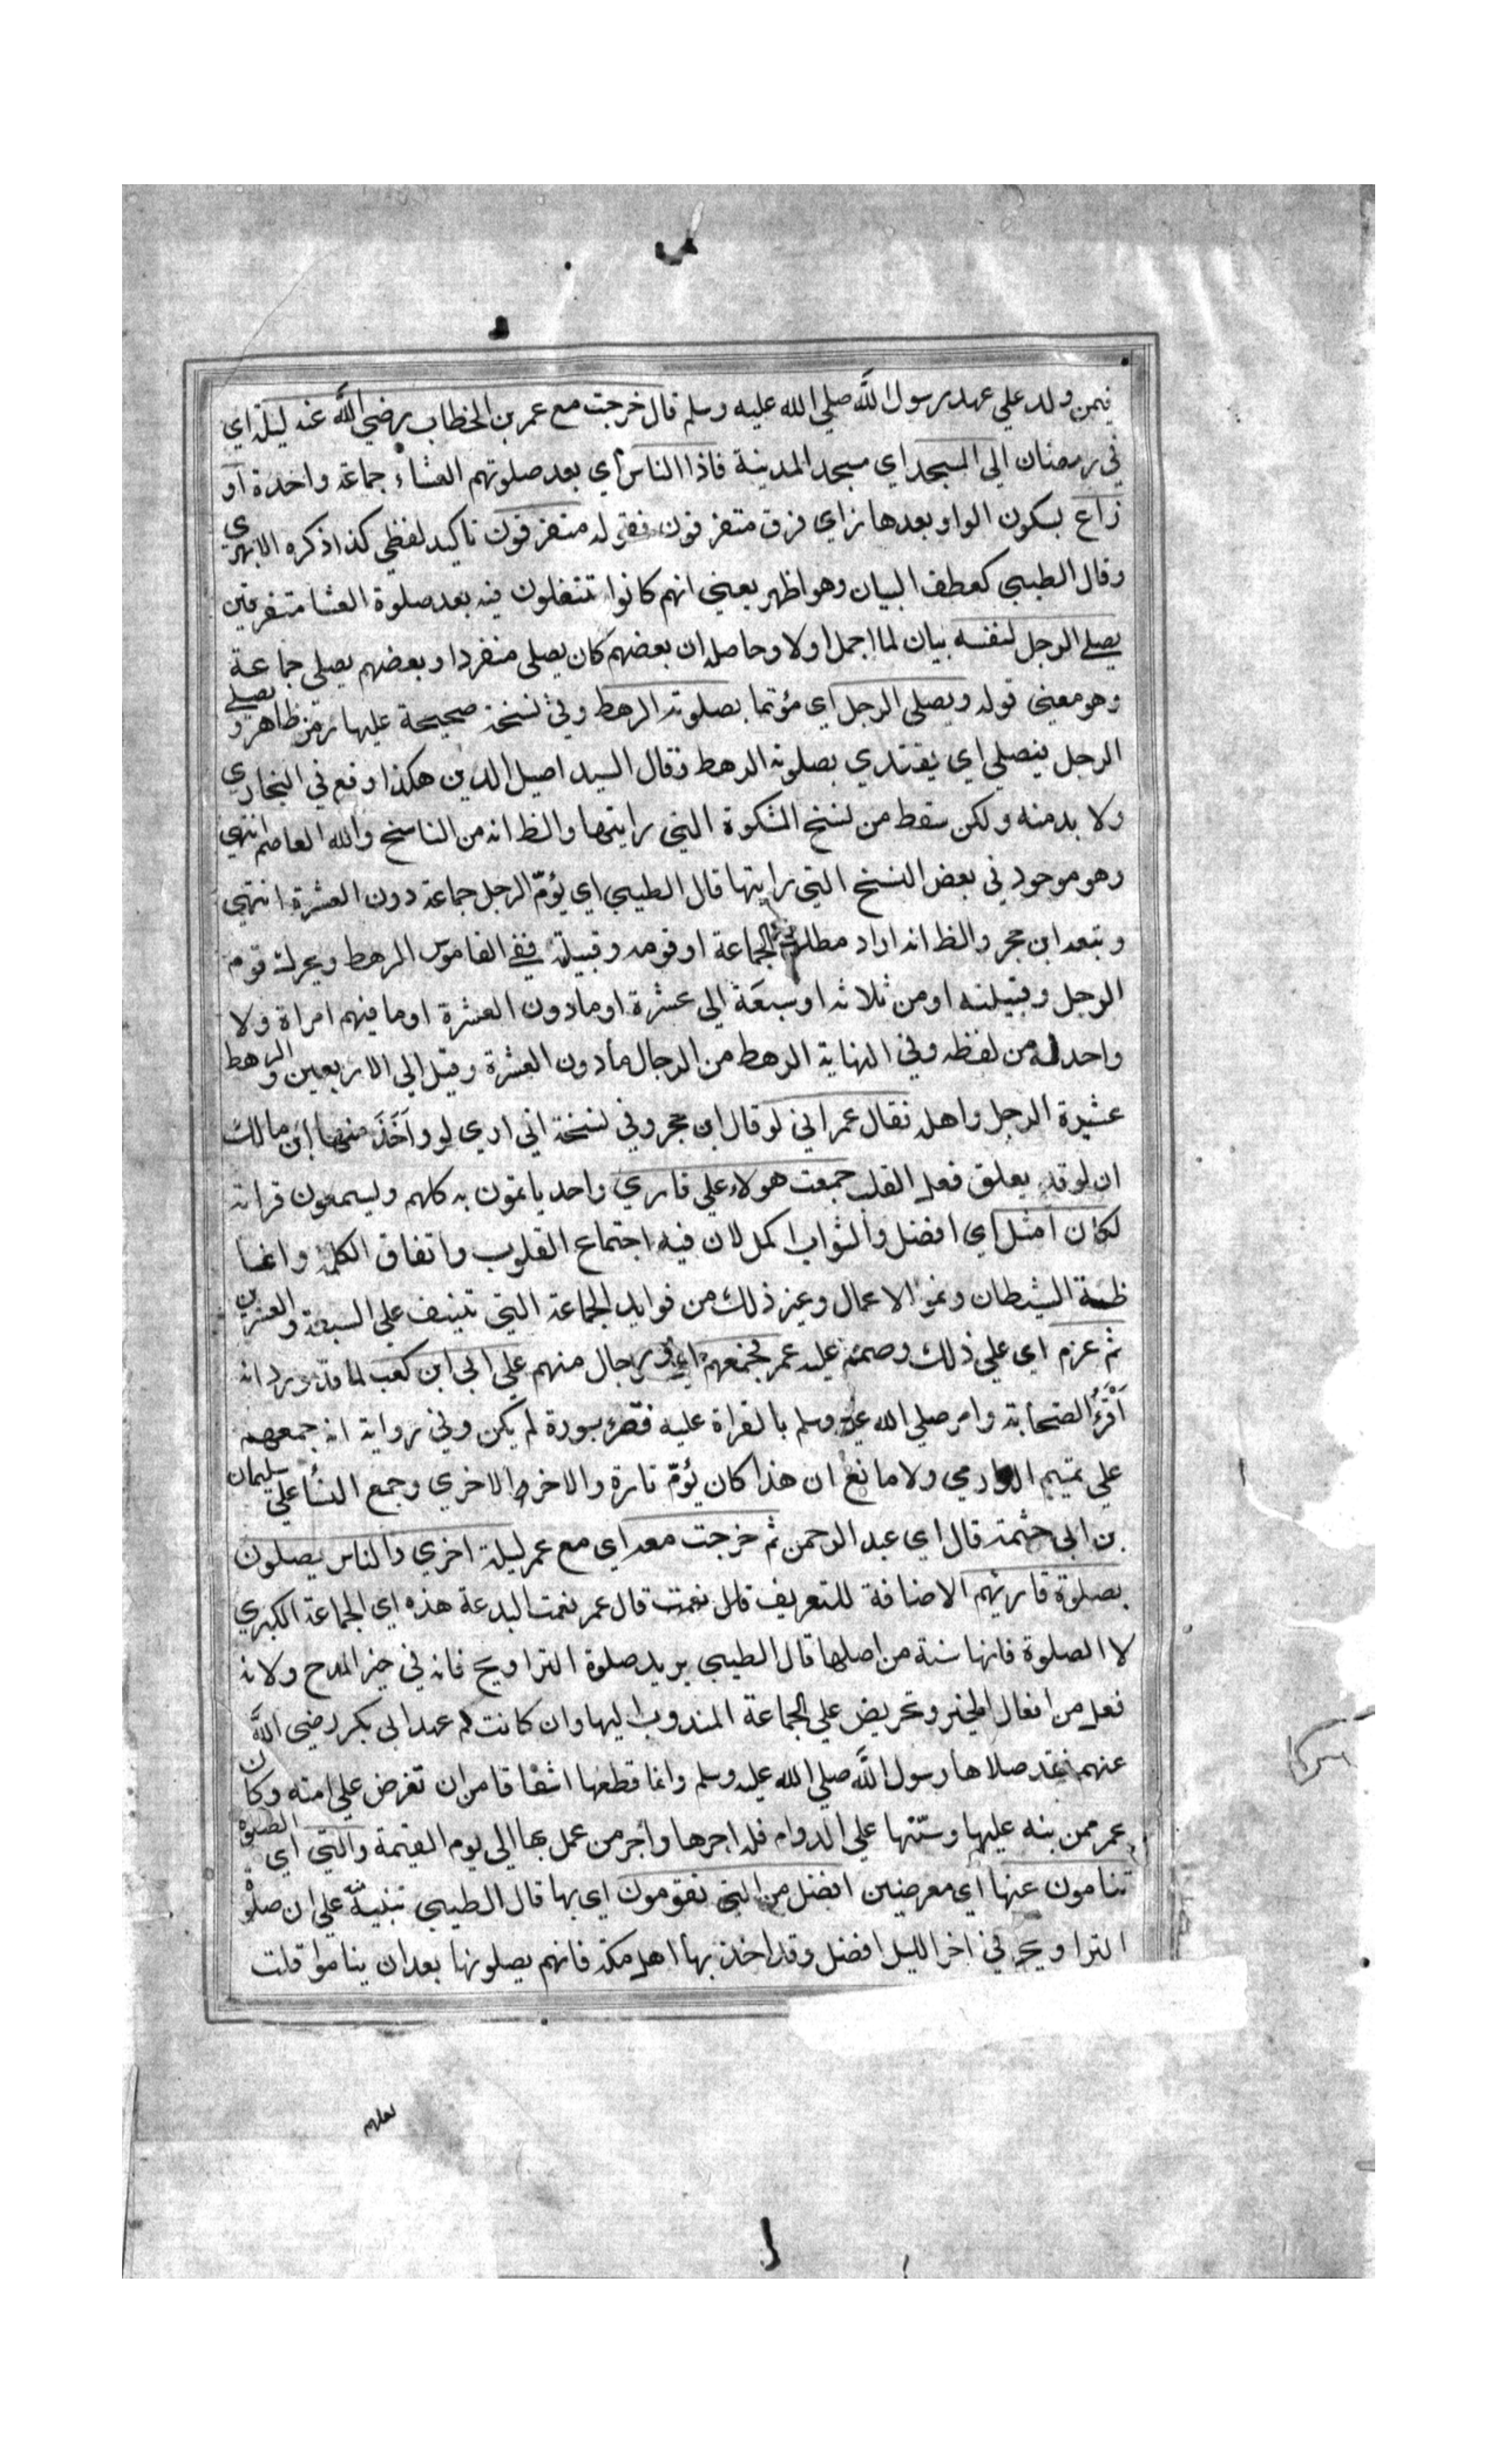 فيمن ولد علي عهد رسول الله صلي الله عليه وسلم قال خرجت مع عمر بن الخطاب رضي الله عنه ليلة اي
في رمضان الي المسجد اي مسجد المدينة فاذا الناس اي بعد صلوتهم العشاء جماعة واحدة او
زاع بسكون الواو بعدها زاي فرق متفرقون فقوله متفرقون تاكيد لفظي كذا ذكره الابهري
وقال الطيبي كعطف البيان وهو اظهر يعني انهم كانوا تنفلون فيه بعد صلوة العشا متفرقين
يصلي الرجل لنفسه بيان لما اجمل اولا وحاصله ان بعضهم كان يصلي منفردا وبعضهم يصلي جماعة
وهو معني قوله ويصلي الرجل اي مؤتما بصلوته الرهط وفي نسخة صحيحة عليها رمز ظاهر ويصلي
الرجل فيصلي اي يقتدي بصلوته الرهط وقال السيد اصيل الدين هكذا وقع في البخاري
ولا بد منه ولكن سقط من نسخ المشكوة التي رايتها والظ انه من الناسخ والله العاصم انتهي
وهو موجود في بعض النسخ التي رايتها قال الطيبي اي يؤمّ الرجل جماعة دون العشرة انتهي
وتبعه ابن حجر والظ انه اراد مطلق الجماعة او قومه وقبيلة ففي القاموس الرهط ويحرك قوم
الرجل وقبيلته او من ثلاثه او سبعة الي عشرة او مادون العشرة او ما فيهم امراة ولا
واحد له من لفظه وفي النهاية الرهط من الرجال مادون العشرة وقيل الي الاربعين والرهط
عشيرة الرجل واهله فقال عمر اني لو قال ابن حجر وفي نسخة اني اري لو واخذ منها ابن مالك
ان لو قد يعلق فعل القلب جمعت هولاء علي قاري واحد ياتمون به كلهم ويسمعون قراته
لكان امثل اي افضل والثواب اكمل لان فيه اجتماع القلوب واتفاق الكلمة واغا
ظة الشيطان ونمو الاعمال وغير ذلك من فوايد الجماعة التي تنيف علي السبعة والعشرين
ثم عزم اي علي ذلك وصمم عليه عمر فجمعهم اي رجال منهم علي ابي ابن كعب لما قد ورد انه
اقرؤ الصحابة وامر صلي الله عليه وسلم بالقراة عليه فقرء سورة لم يكن وفي رواية انه جمعهم
علي تميم الداري ولا مانع ان هذا كان يؤمّ تارة والاخر الاخري وجمع النسأ علي سليمان
بن ابي حثمة قال اي عبد الرحمن ثم خرجت معه اي مع عمر ليلة اخري والناس يصلون
بصلوة قاريهم الاضافة للتعريف قال نعمت قال عمر نعمت البدعة هذه اي الجماعة الكبري
لا الصلوة فانها سنة من اصلها قال الطيبي يريد صلوة التراويح فانه في حيز المدح ولانه
فعل من افعال الخير وتحريض علي الجماعة المندوب اليها وان كانت لم عهد ابي بكر رضي الله
عنهما فقد صلاها رسول الله صلي الله عليه وسلم وانما قطعها اشفاقا من ان تفرض علي امته وكان
عمر ممن نبه عليها وسنّها علي الدوام فله اجرها واجر من عمل بها الي يوم القيمة والتي اي الصلوة
تنامون عنها اي معرضين افضل من التي تقومون اي بها قال الطيبي تنبيه علي ان صلوة
التراويح في اخر الليل افضل وقد اخذ بها اهل مكة فانهم يصلونها بعد ان يناموا قلت
لعلهم